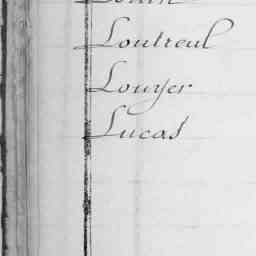 Loutreul
Louyer
Lucas